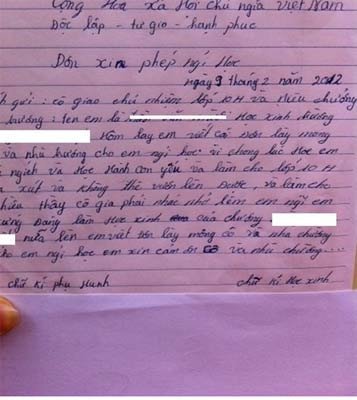 Cộng Hòa xã Hơi chủ ngĩa việt Nam
Độc lập - tự gio - hành phúc
Đơn xin phép ngỉ Học
ngày 9 tháng 2 năm 2012
h gửi : cô giao chủ nhiệm lớp 10H và Nhiêu chường
trường : ten em là Học xinh chường
Hôm lay em viết cái đơn lày mong
và nhà hướng cho em ngỉ học vì chong lúc Học em
ngịch và Học Hành con yếu và làm cho lớp 10 H
xút và không thể vươn lên Được, và làm cho
thầy cô gia phải nhác nhở lêm em ngĩ em
ứng Đáng làm Học xinh của chường
nữa lên em viết đơn lày mong cô và nhà chường
cho em ngỉ học em xin cảm ơn cô và nhà chường...
chữ kí phụ Hunh
chữ kí Học xinh